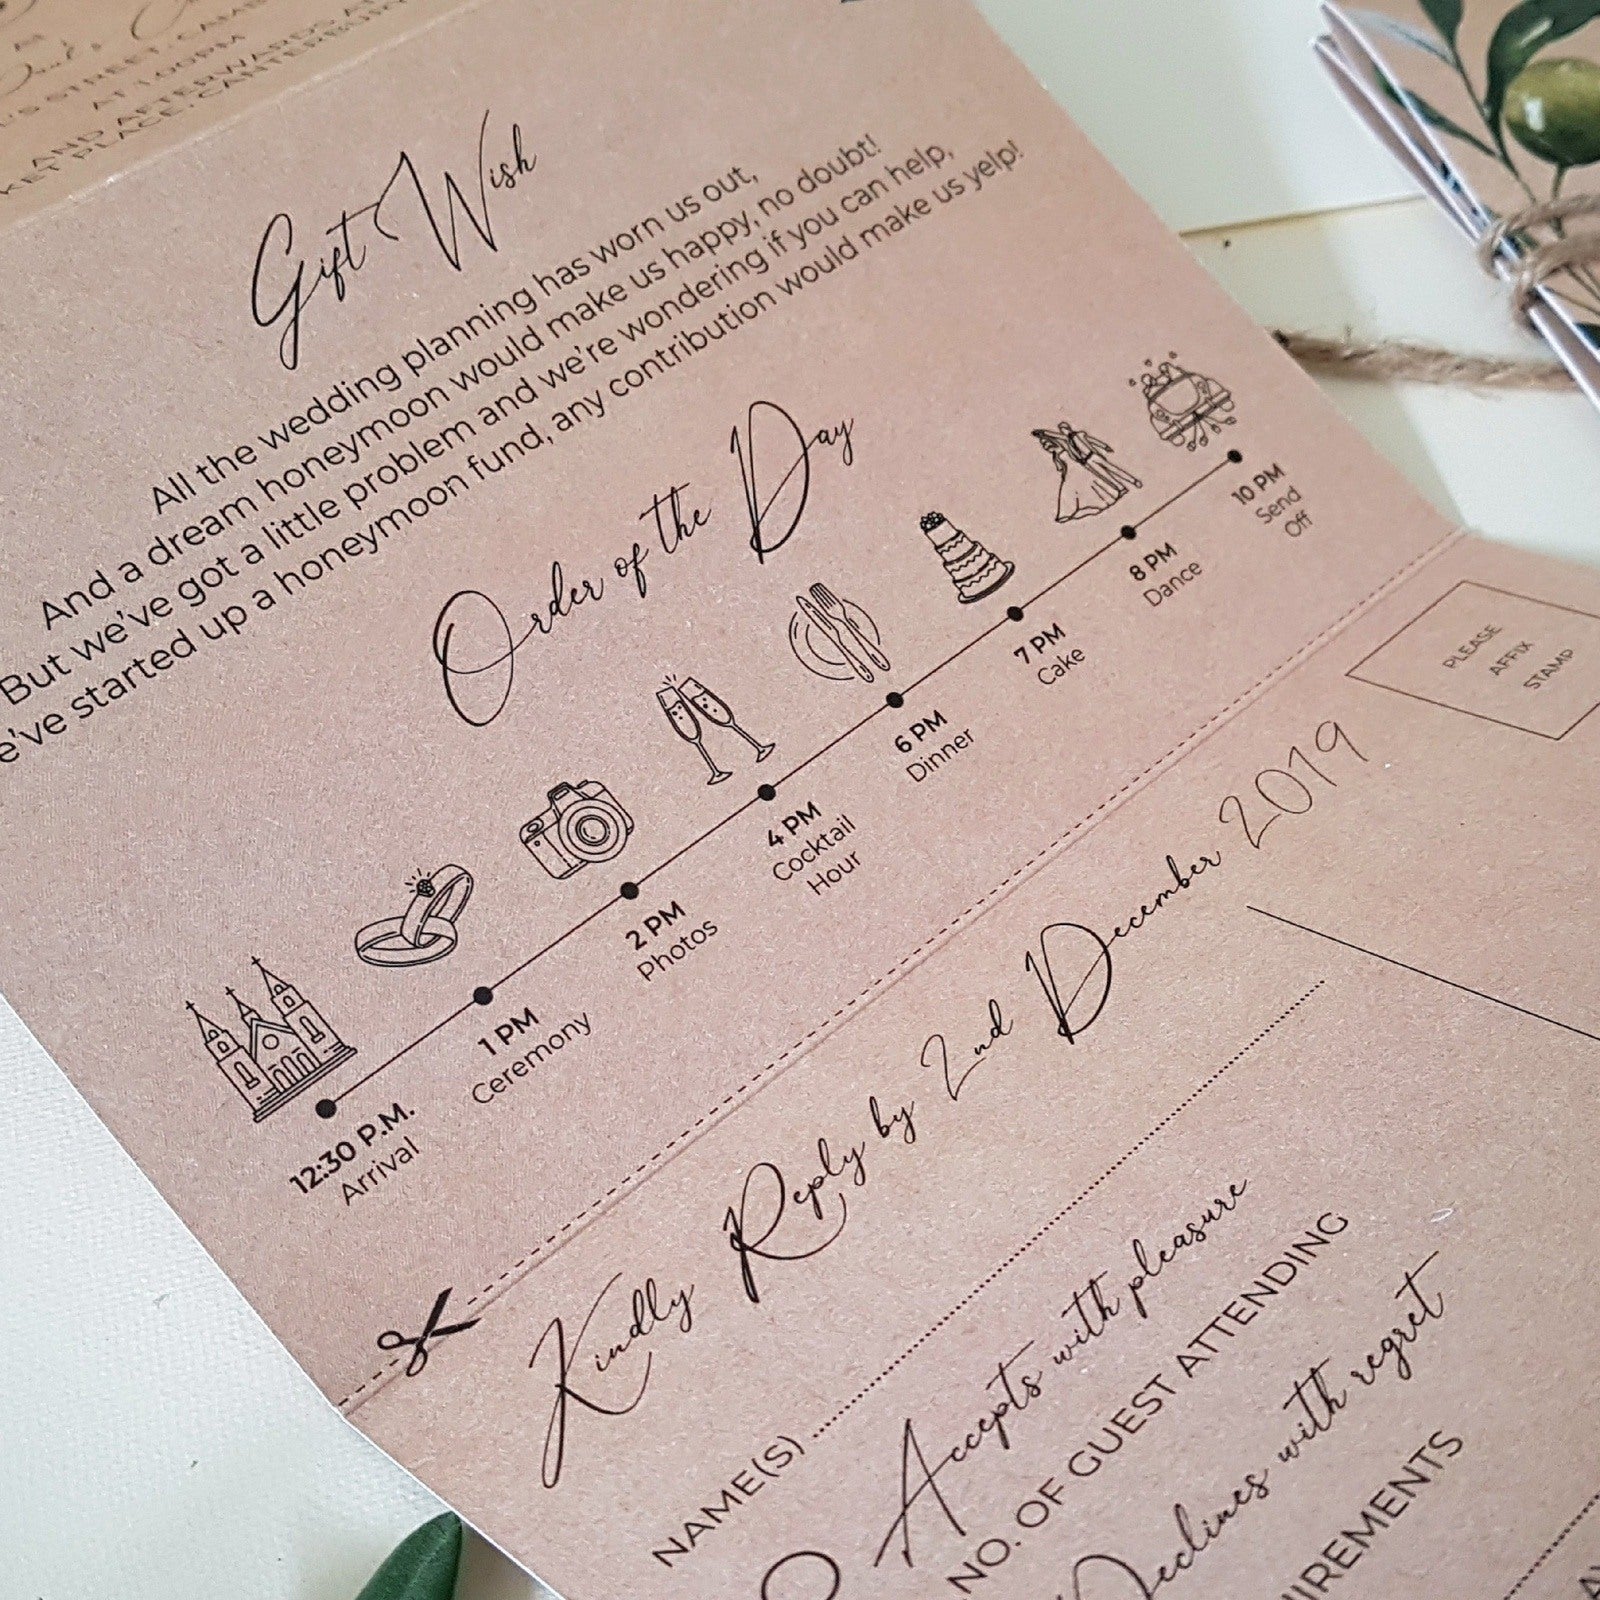 AT
STREET, CAMB
AT 1:00PM
AND AFTERWARDS AT
KET PLACE, CANTERBURY
Gift Wish
All the wedding planning has worn us out,
And a dream honeymoon would make us happy, no doubt!
But we've got a little problem and we're wondering if you can help,
e've started up a honeymoon fund, any contribution would make us yelp!
Order of the Day
12:30 P.M.
Arrival
1 PM
Ceremony
2 PM
Photos
4 PM
Cocktail
Hour
6 PM
Dinner
7 PM
Cake
8 PM
Dance
10 PM
Send
Off
PLEASE
AFFIX
STAMP
Kindly Reply by 2nd December 2019
NAME(S)
Accepts with pleasure
NO. OF GUEST ATTENDING
Declines with regret
UIREMENTS